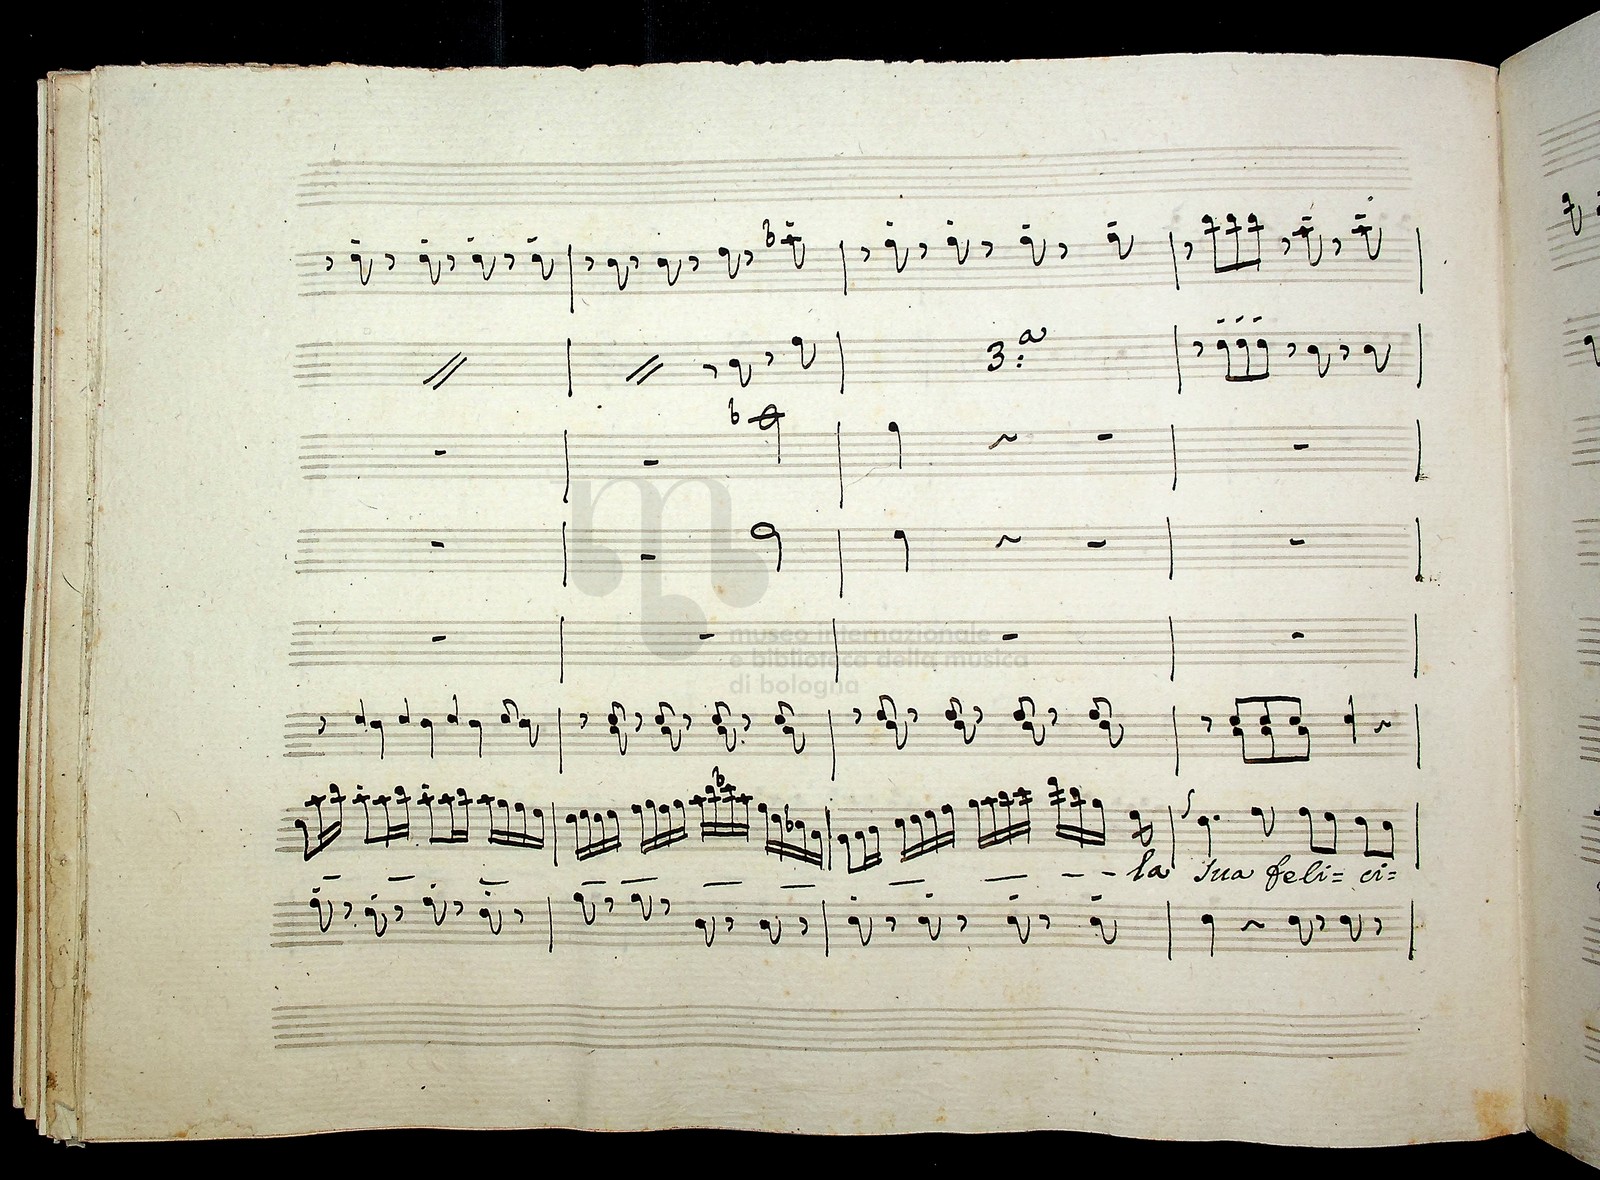 3:a
museo internazionale
e biblioteca della musica
di bologna
la sua feli= ci=